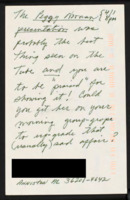 The Peggy Noonan (4/1
presentation was 8pm
probably the best
thing seen on the
Tube and you are
to be praised for
showing it! Could
you get her on your
morning group-grope
to upgrade that
(usually) sad affair?
Anniston AL 36201-4642